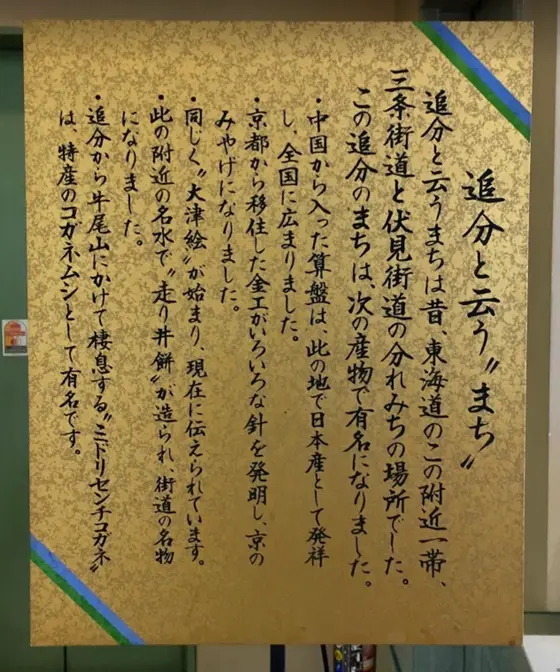 追分と云う〝まち〟
追分と云うまちは昔、東海道のこの附近一帯、
三条街道と伏見街道の分れみちの場所でした。
この追分のまちは、次の産物で有名になりました。
・中国から入った算盤は、此の地で日本産として発祥
し、全国に広まりました。
・京都から移住した金工がいろいろな針を発明し、京の
みやげになりました。
・同じく〝大津絵〟が始まり、現在に伝えられています。
・此の附近の名水で〝走り井餅〟が造られ、街道の名物
になりました。
・追分から牛尾山にかけて棲息する〝ミドリセンチコガネ〟
は、特産のコガネムシとして有名です。